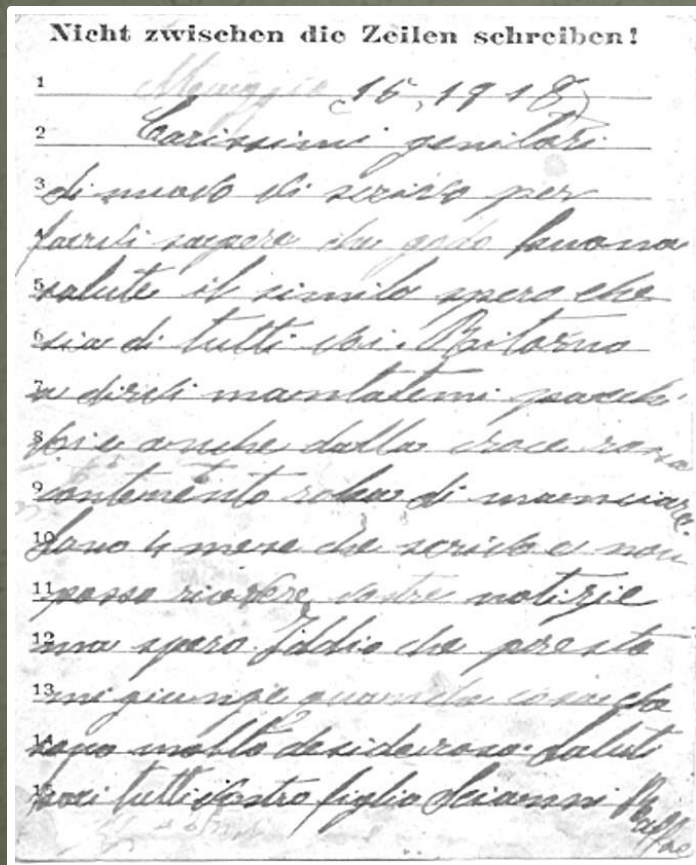 Nicht zwischen die Zeilen schreiben!
1 Maggio 15, 1918
2 Carissimi genitori
3 di nuovo vi scrivo per
4 farvi sapere che godo buona
5 salute il simile spero che
6 sia di tutti voi. Ritorno
7 a dirvi mandatemi
8 anche dalla croce rossa
9 roba di
10 Sono 4 mese che scrivo e non
11 posso vostre notizie
12 ma spero Iddio che presto
13 mi
14 sono molto desideroso. Saluti
15 voi tutti Vostro figlio Scianni